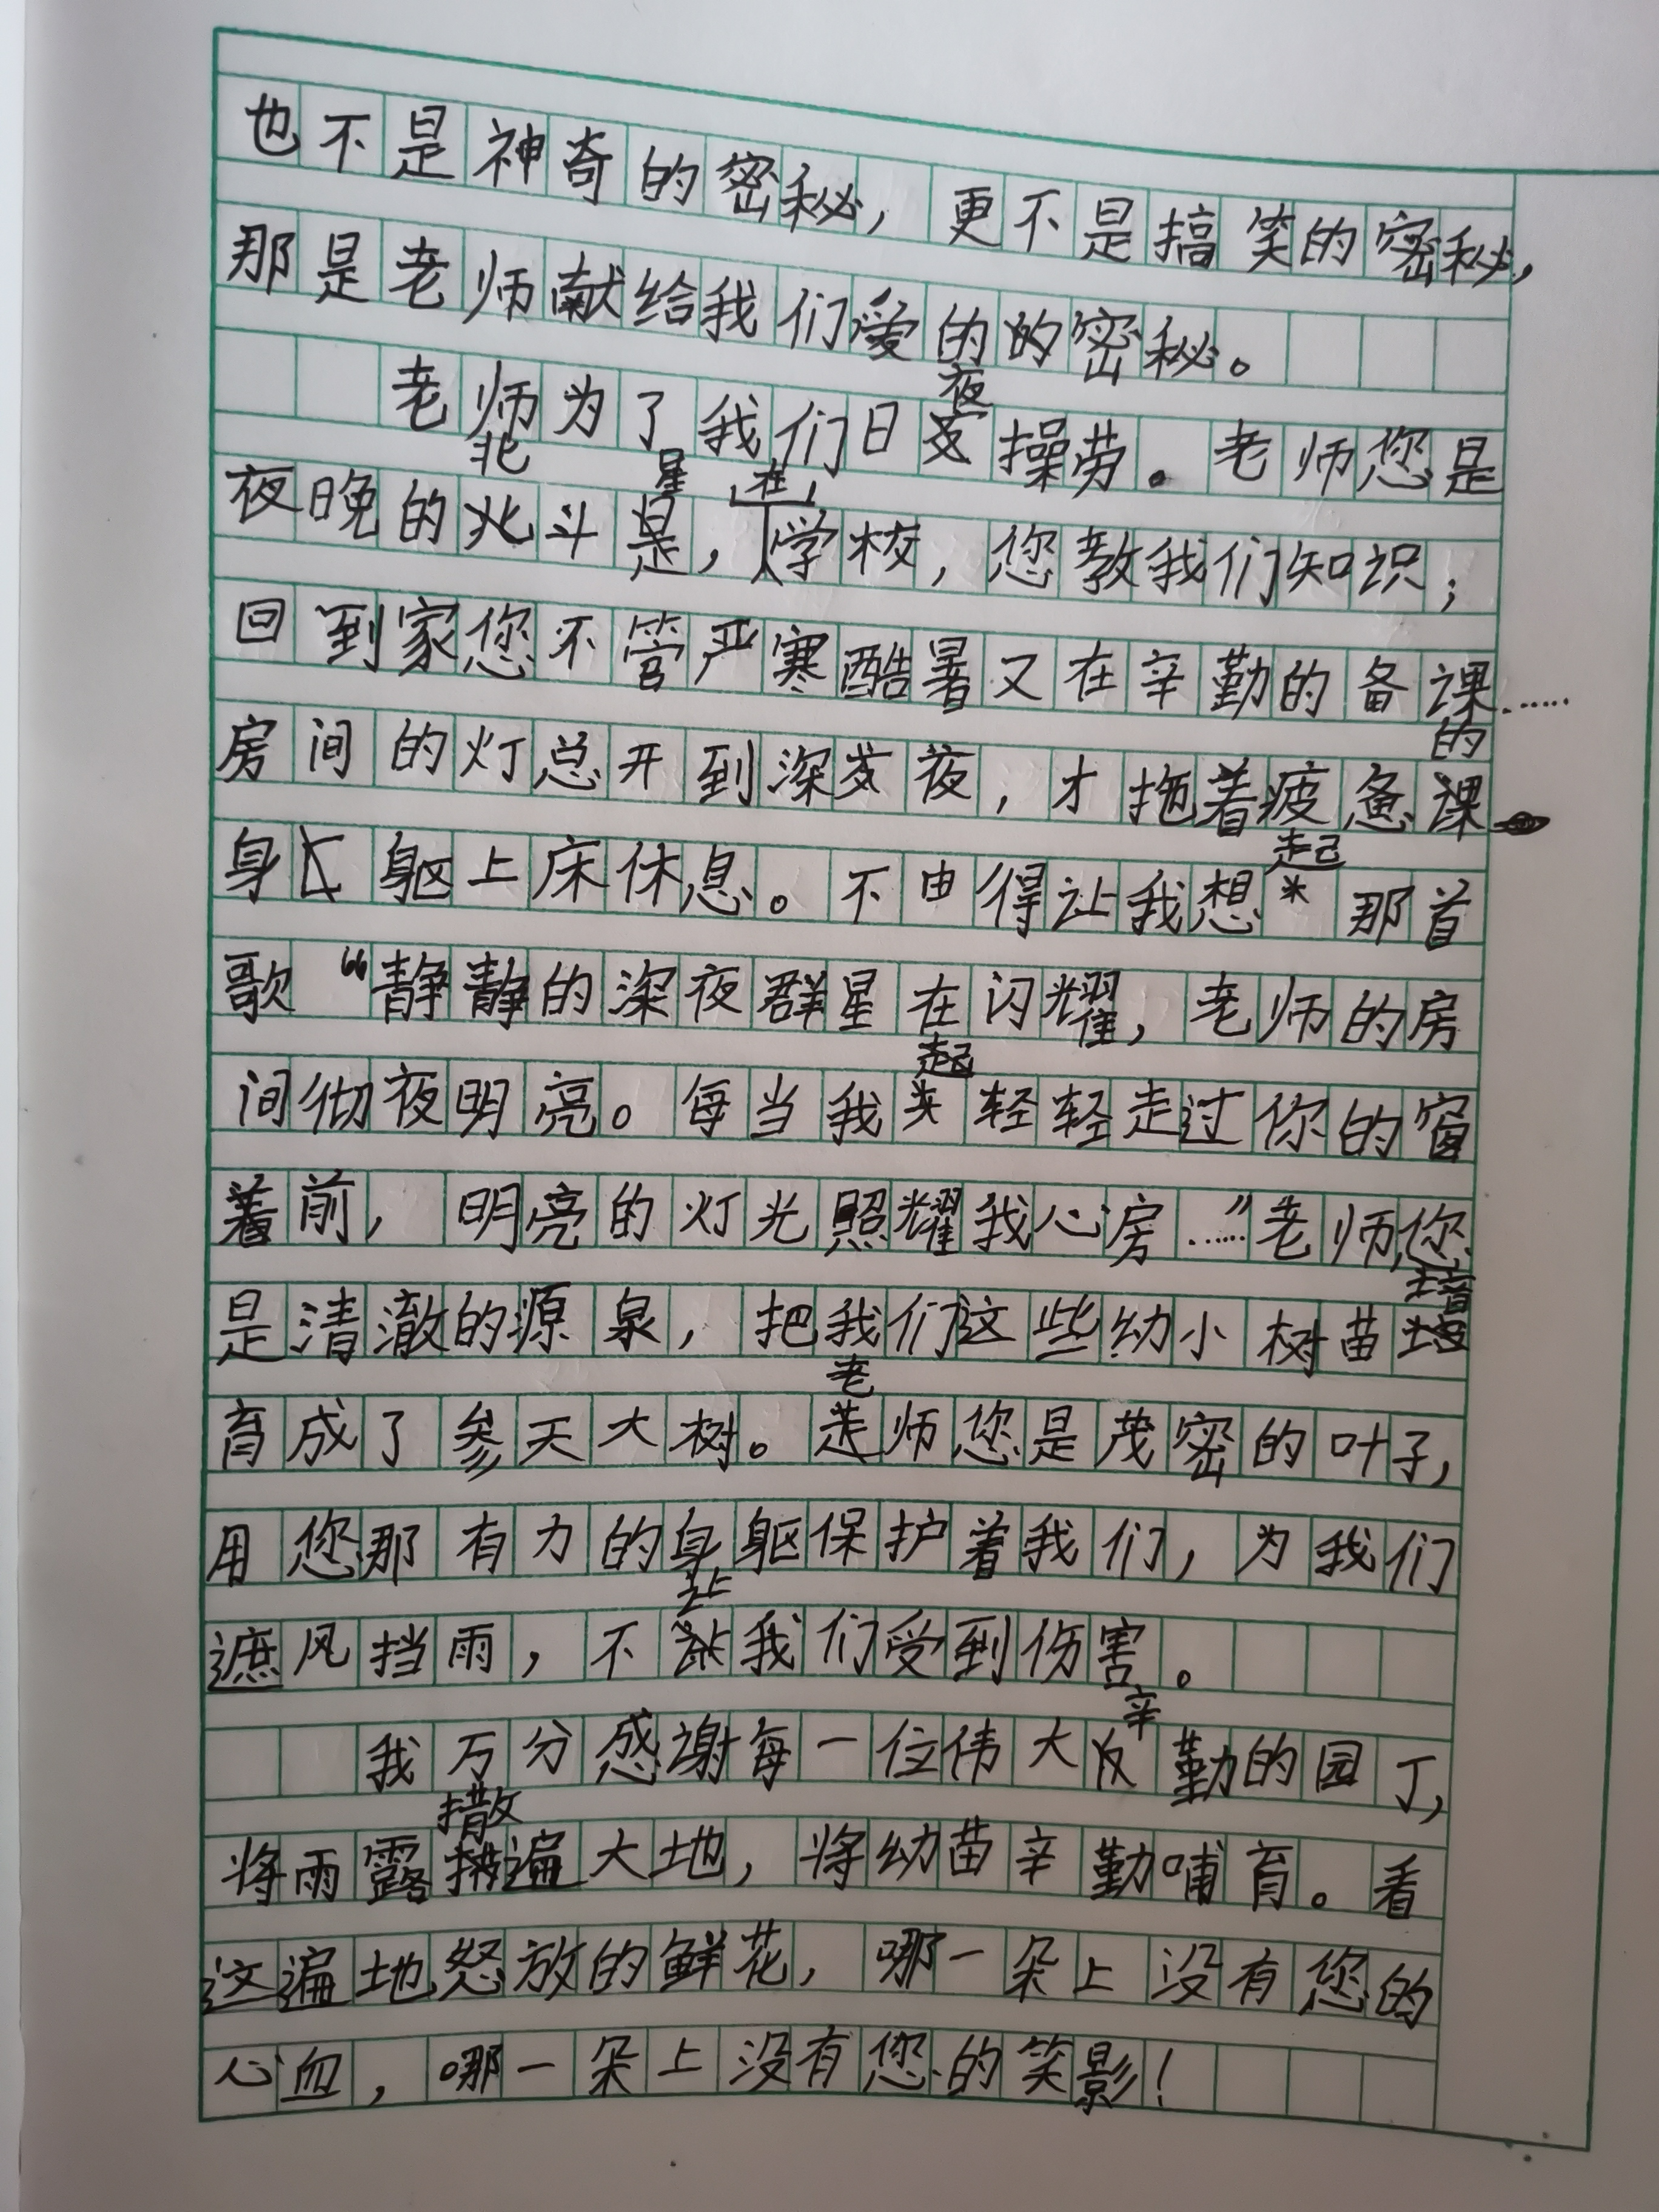 也不是神奇的密秘，更不是搞笑的密秘，
那是老师献给我们爱的的密秘。
老师为了我们日夜操劳。老师您是
夜晚的北斗星，在学校，您教我们知识；
回到家您不管严寒酷暑又在辛勤的备课……
房间的灯总开到深夜，才拖着疲惫的
身躯上床休息。不由得让我想起那首
歌“静静的深夜群星在闪耀，老师的房
间彻夜明亮。每当我起轻轻走过你的窗
前，明亮的灯光照耀我心房……”老师，您
是清澈的源泉，把我们这些幼小树苗培
育成了参天大树。老师您是茂密的叶子，
用您那有力的身躯保护着我们，为我们
遮风挡雨，不让我们受到伤害。
我万分感谢每一位伟大辛勤的园丁，
将雨露撒遍大地，将幼苗辛勤哺育。看
这遍地怒放的鲜花，哪一朵上没有您的
心血，哪一朵上没有您的笑影！